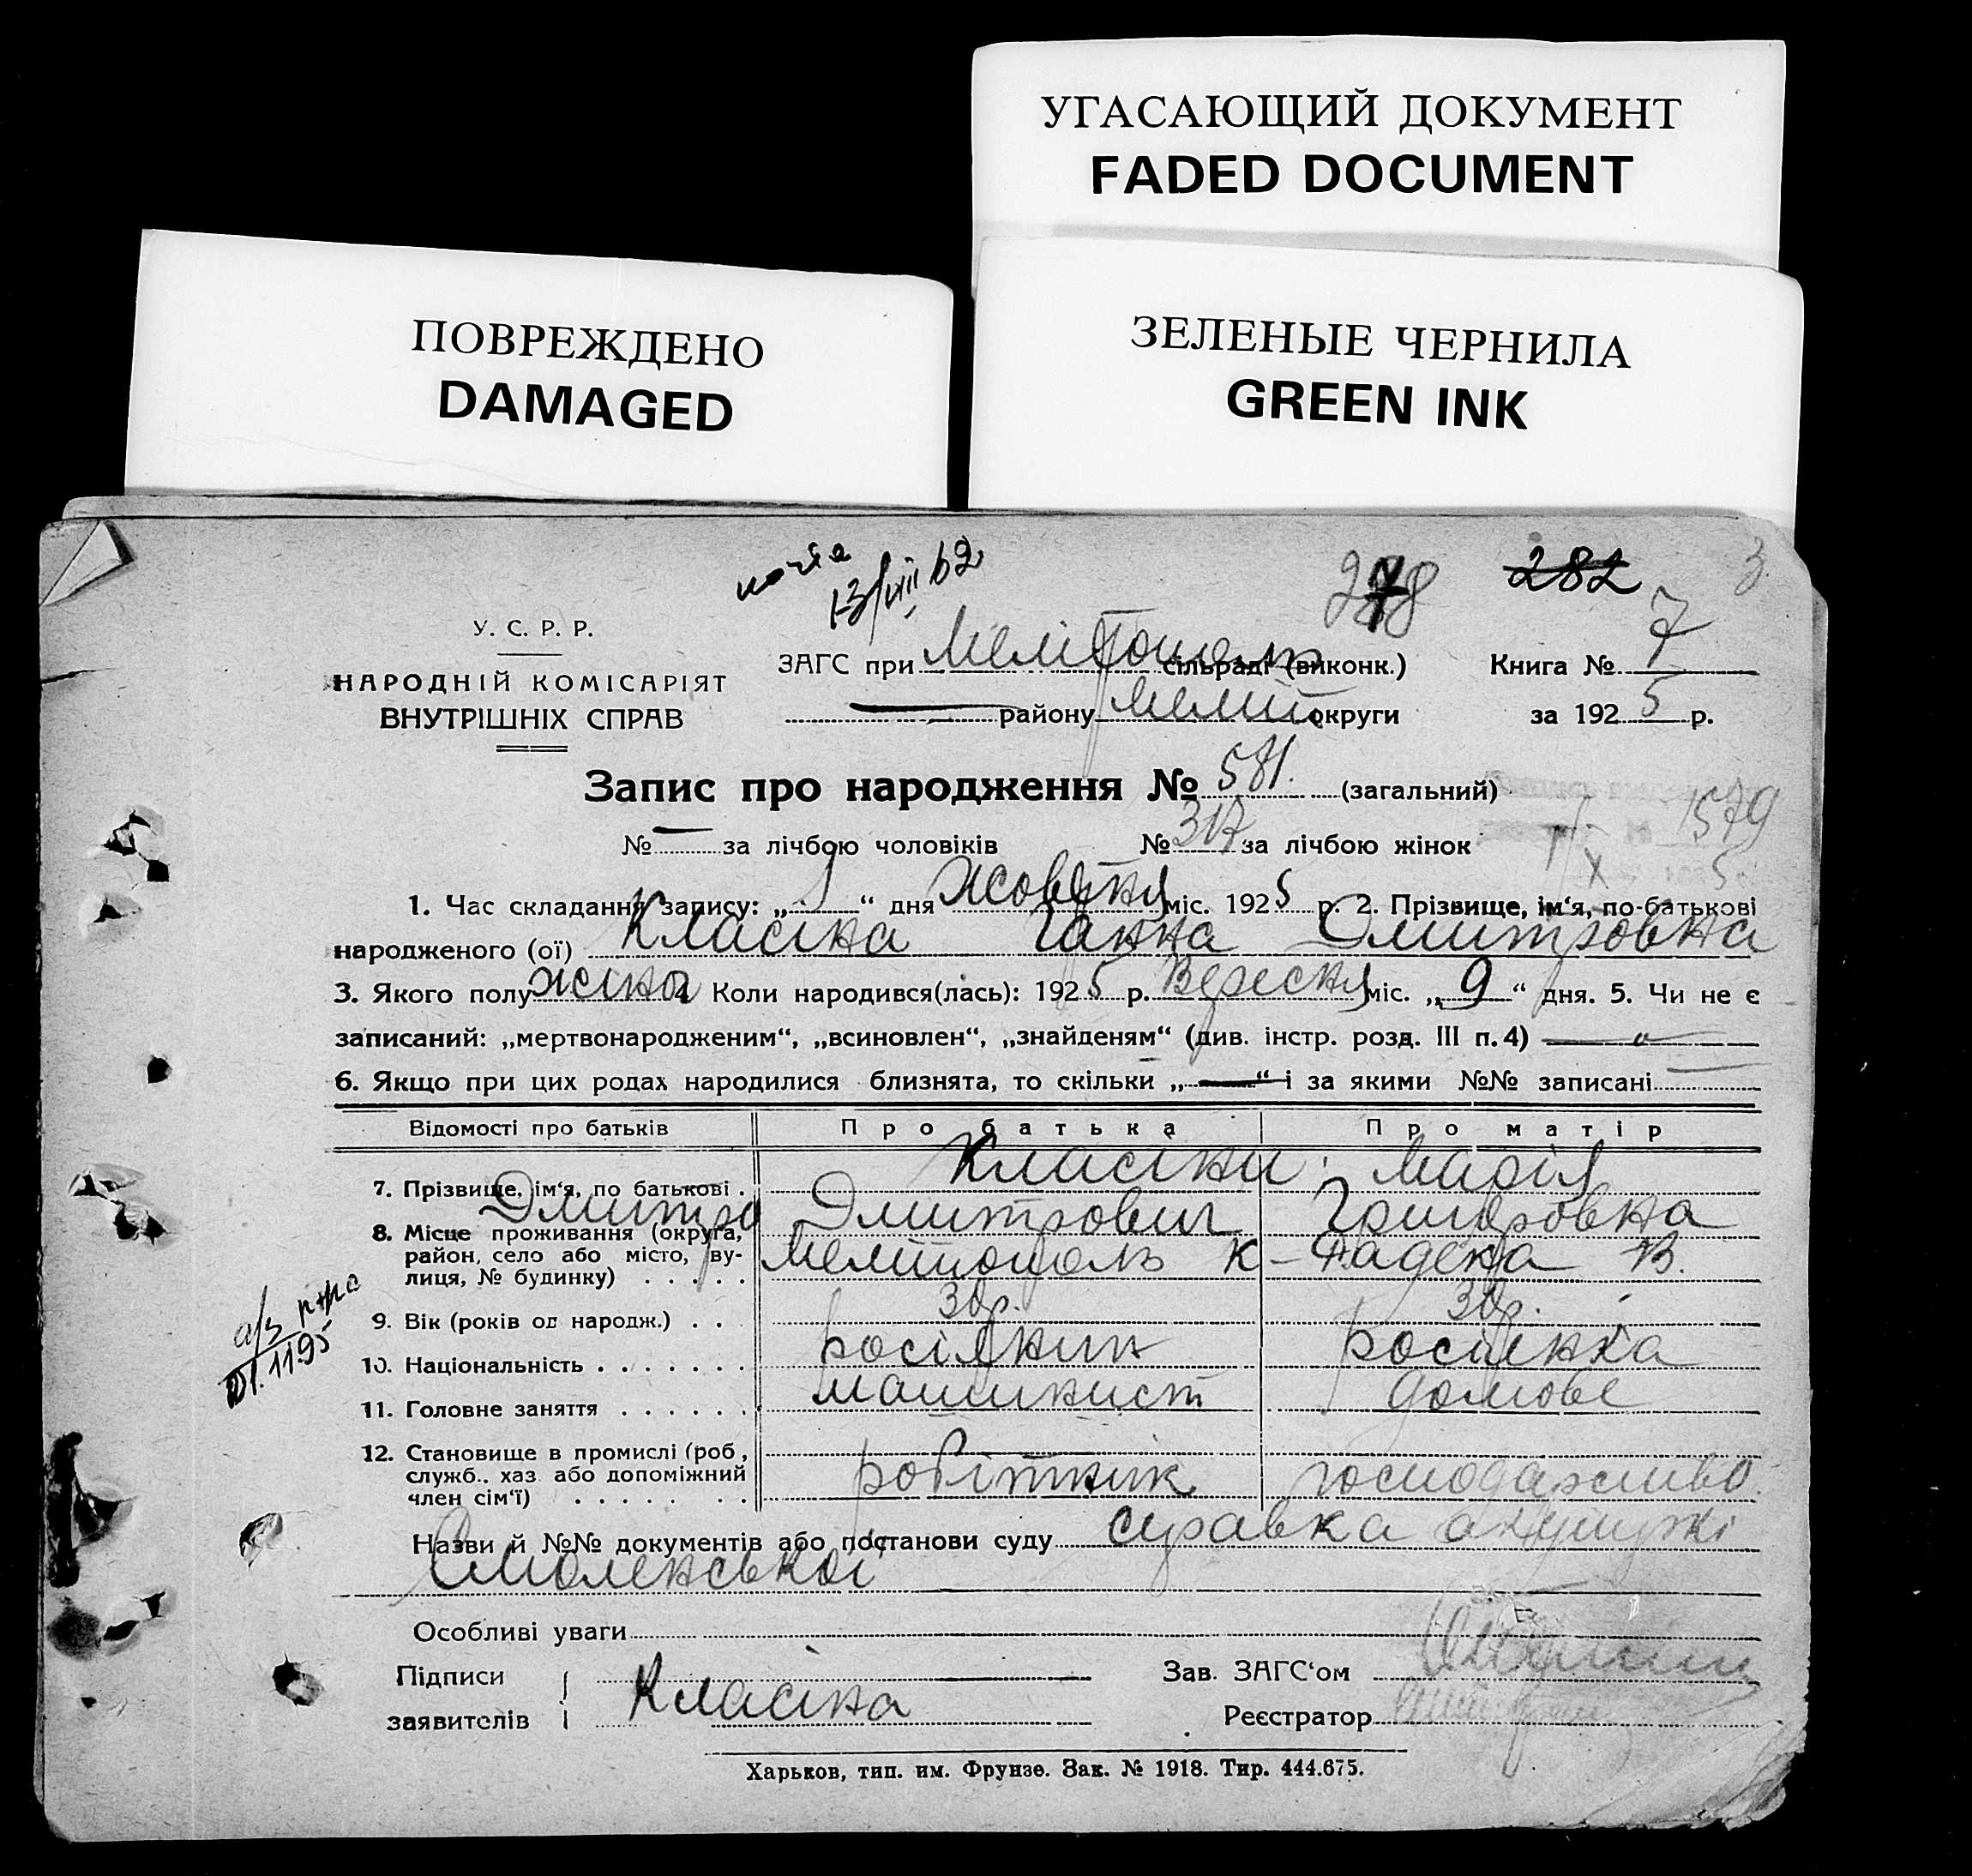 УГАСАЮЩИЙ ДОКУМЕНТ
FADED DOCUMENT
ПОВРЕЖДЕНО
DAMAGED
ЗЕЛЕНЫЕ ЧЕРНИЛА
GREEN INK
282 3
13/VII 62
У. С. Р. Р.
НАРОДНІЙ КОМІСАРІЯТ
ВНУТРІШНІХ СПРАВ
ЗАГС при Мелітополь сільраді (виконк.) Книга № 7
району Меліт округи за 1925 р.
Запис про народження № 581. (загальний)
1579
№ — за лічбою чоловіків № 317 за лічбою жінок
1. Час складання запису: „1“ дня Жовтня міс. 1925 р. 2. Прізвище, ім‘я, по-батькові
народженого (ої) Класіна Ганна Дмитровна
3. Якого полу жіноч Коли народився(лась): 1925 р. Вересня міс. „9“ дня. 5. Чи не є
записаний: „мертвонародженим“, „всиновлен“, „знайденям“ (див. інстр. розд. III п. 4) —
6. Якщо при цих родах народилися близнята, то скільки „—“ і за якими №№ записані —
Відомості про батьків Про батька Про матір
7. Прізвище, ім‘я, по батькові . Класіни Марія
Дмитро Дмитрович Григоровна
8. Місце проживання (округа,
район, село або місто, ву-
лиця, № будинку) . . . . . Мелітополь К-Радека В.
9. Вік (років од народж.) . . . 30р. 30р.
10. Національність . . . . . . . росіянин росіянка
11. Головне заняття . . . . . . машинист домове
12. Становище в промислі (роб,
служб., хаз. або допоміжний
член сім‘ї) . . . . . . . робітник господарство
Назви й №№ документів або постанови суду справка акушуркі
Смоленської
Особливі уваги
Підписи
заявителів Класіна
Зав. ЗАГС‘ом
Реєстратор
Харьков, тип. им. Фрунзе. Зак. № 1918. Тир. 444.675.